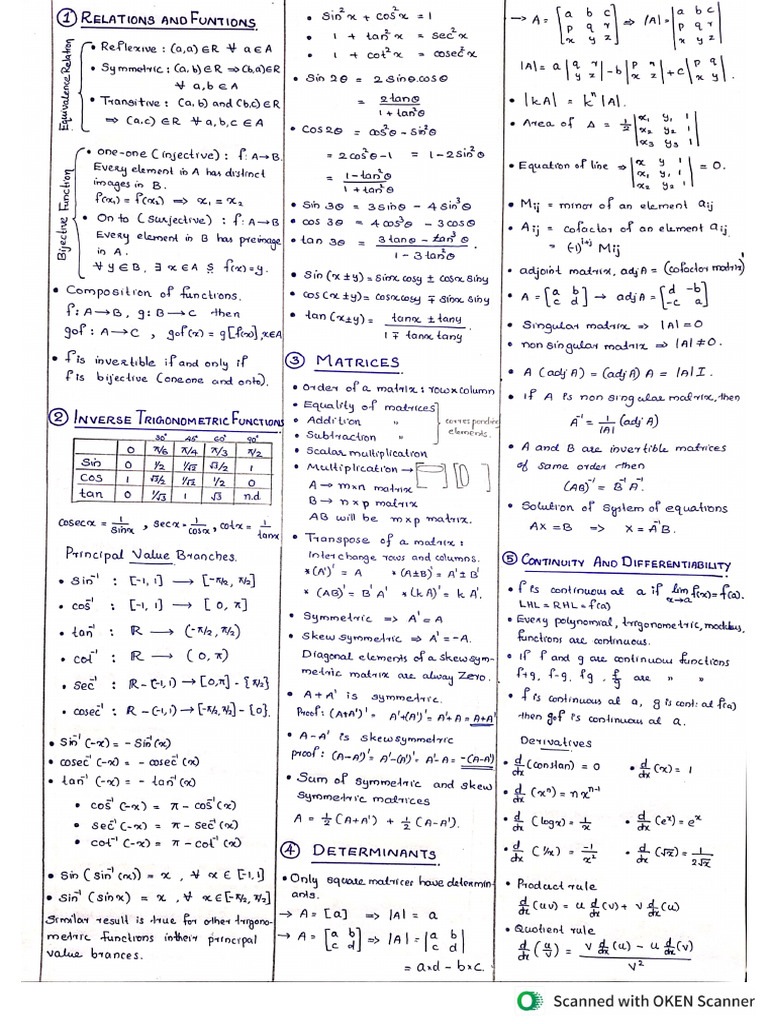 ① RELATIONS AND FUNTIONS
Equivalence Relation
• Reflexive : (a,a) ∈ R ∀ a ∈ A
• Symmetric : (a,b) ∈ R ⇒ (b,a) ∈ R
∀ a,b ∈ A
• Transitive : (a,b) and (b,c) ∈ R
⇒ (a,c) ∈ R ∀ a,b,c ∈ A
Bijective Function
• one-one (injective) : f: A→B.
Every element in A has distinct
images in B.
f(x₁) = f(x₂) ⇒ x₁ = x₂
• On to (surjective) : f: A→B
Every element in B has preimage
in A.
∀ y ∈ B, ∃ x ∈ A S f(x) = y.
• Composition of functions.
f: A→B, g: B→C then
gof : A→C, gof(x) = g[f(x)], x∈A
• f is invertible if and only if
f is bijective (oneone and onto).
② INVERSE TRIGONOMETRIC FUNCTIONS
30° 45° 60° 90°
0 π/6 π/4 π/3 π/2
Sin 0 1/2 1/√2 √3/2 1
Cos 1 √3/2 1/√2 1/2 0
tan 0 1/√3 1 √3 n.d
cosecx = 1/sinx , secx = 1/cosx , cotx = 1/tanx
Principal Value Branches.
• sin⁻¹ : [-1, 1] ⟶ [-π/2, π/2]
• cos⁻¹ : [-1, 1] ⟶ [0, π]
• tan⁻¹ : R ⟶ (-π/2, π/2)
• cot⁻¹ : R ⟶ (0, π)
• sec⁻¹ : R - (-1, 1) → [0, π] - {π/2}
• cosec⁻¹ : R - (-1, 1) → [-π/2, π/2] - {0}.
• Sin⁻¹ (-x) = - Sin⁻¹ (x)
• cosec⁻¹ (-x) = - cosec⁻¹ (x)
• tan⁻¹ (-x) = - tan⁻¹ (x)
• cos⁻¹ (-x) = π - cos⁻¹ (x)
• sec⁻¹ (-x) = π - sec⁻¹ (x)
• cot⁻¹ (-x) = π - cot⁻¹ (x)
• Sin (sin⁻¹ (x)) = x , ∀ x ∈ [-1, 1]
• Sin⁻¹ (sinx) = x , ∀ x ∈ [-π/2, π/2]
Similar result is true for other trigono-
metric functions in their principal
value brances.
• Sin²x + cos²x = 1
• 1 + tan²x = sec²x
• 1 + cot²x = cosec²x
• Sin 2θ = 2 sinθ.cosθ
= 2tanθ / 1 + tan²θ
• Cos 2θ = cos²θ - sin²θ
= 2cos²θ - 1 = 1 - 2sin²θ
= 1 - tan²θ / 1 + tan²θ
• Sin 3θ = 3sinθ - 4sin³θ
• cos 3θ = 4cos³θ - 3cosθ
• tan 3θ = 3tanθ - tan³θ / 1 - 3tan²θ .
• Sin (x±y) = sinx cosy ± cosx siny
• cos (x±y) = cosx cosy ∓ sinx siny
• tan (x±y) = tanx ± tany / 1 ∓ tanx tany
③ MATRICES
• Order of a matrix : row×column
• Equality of matrices
• Addition "
• Subtraction "
corresponding elements.
• Scalar multiplication
• Multiplication →
A → m×n matrix
B → n×p matrix
AB will be m×p matrix.
• Transpose of a matrix :
Interchange rows and columns.
*(A')' = A *(A±B)' = A' ± B'
*(AB)' = B' A' *(kA)' = k A'.
• Symmetric ⇒ A' = A
• Skew symmetric ⇒ A' = -A.
Diagonal elements of a skew sym-
metric matrix are alway Zero.
• A + A' is symmetric.
Proof : (A+A')' = A' + (A')' = A' + A = A+A'
• A - A' is skewsymmetric
proof : (A-A')' = A' - (A')' = A' - A = -(A-A')
• Sum of symmetric and skew
symmetric matrices
A = 1/2 (A+A') + 1/2 (A-A').
④ DETERMINANTS
• Only square matrices have determin-
ants.
→ A = [a] ⇒ |A| = a
→ A = [a b; c d] ⇒ |A| = |a b; c d|
= a×d - b×c.
→ A = [a b c; p q r; x y z] ⇒ |A| = |a b c; p q r; x y z|
|A| = a |q r; y z| - b |p r; x z| + c |p q; x y| .
• |kA| = kⁿ |A|.
• Area of Δ = 1/2 |x₁ y₁ 1; x₂ y₂ 1; x₃ y₃ 1|
• Equation of line ⇒ |x y 1; x₁ y₁ 1; x₂ y₂ 1| = 0.
• Mij = minor of an element aij
• Aij = cofactor of an element aij
= (-1)ⁱ⁺ʲ Mij
• adjoint matrix, adj A = (cofactor matrix)'
• A = [a b; c d] → adj A = [d -b; -c a]
• Singular matrix ⇒ |A| = 0
• non singular matrix ⇒ |A| ≠ 0.
• A (adj A) = (adj A) A = |A| I.
• If A is non singular matrix, then
A⁻¹ = 1/|A| (adj A)
• A and B are invertible matrices
of same order then
(AB)⁻¹ = B⁻¹ A⁻¹.
• Solution of System of equations
AX = B ⇒ X = A⁻¹B.
⑤ CONTINUITY AND DIFFERENTIABILITY
• f is continuous at a if lim x→a f(x) = f(a).
LHL = RHL = f(a)
• Every polynomial, trigonometric, modulus,
functions are continuous.
• If f and g are continuous functions
f+g, f-g, fg, f/g are " "
• f is continuous at a, g is cont: at f(a)
then gof is continuous at a.
Derivatives
• d/dx (constan) = 0 • d/dx (x) = 1
• d/dx (xⁿ) = n xⁿ⁻¹
• d/dx (logx) = 1/x • d/dx (eˣ) = eˣ
• d/dx (1/x) = -1/x² • d/dx (√x) = 1/2√x
• Product rule
d/dx (uv) = u d/dx (v) + v d/dx (u)
• Quotient rule
d/dx (u/v) = v d/dx (u) - u d/dx (v) / v²
Scanned with OKEN Scanner